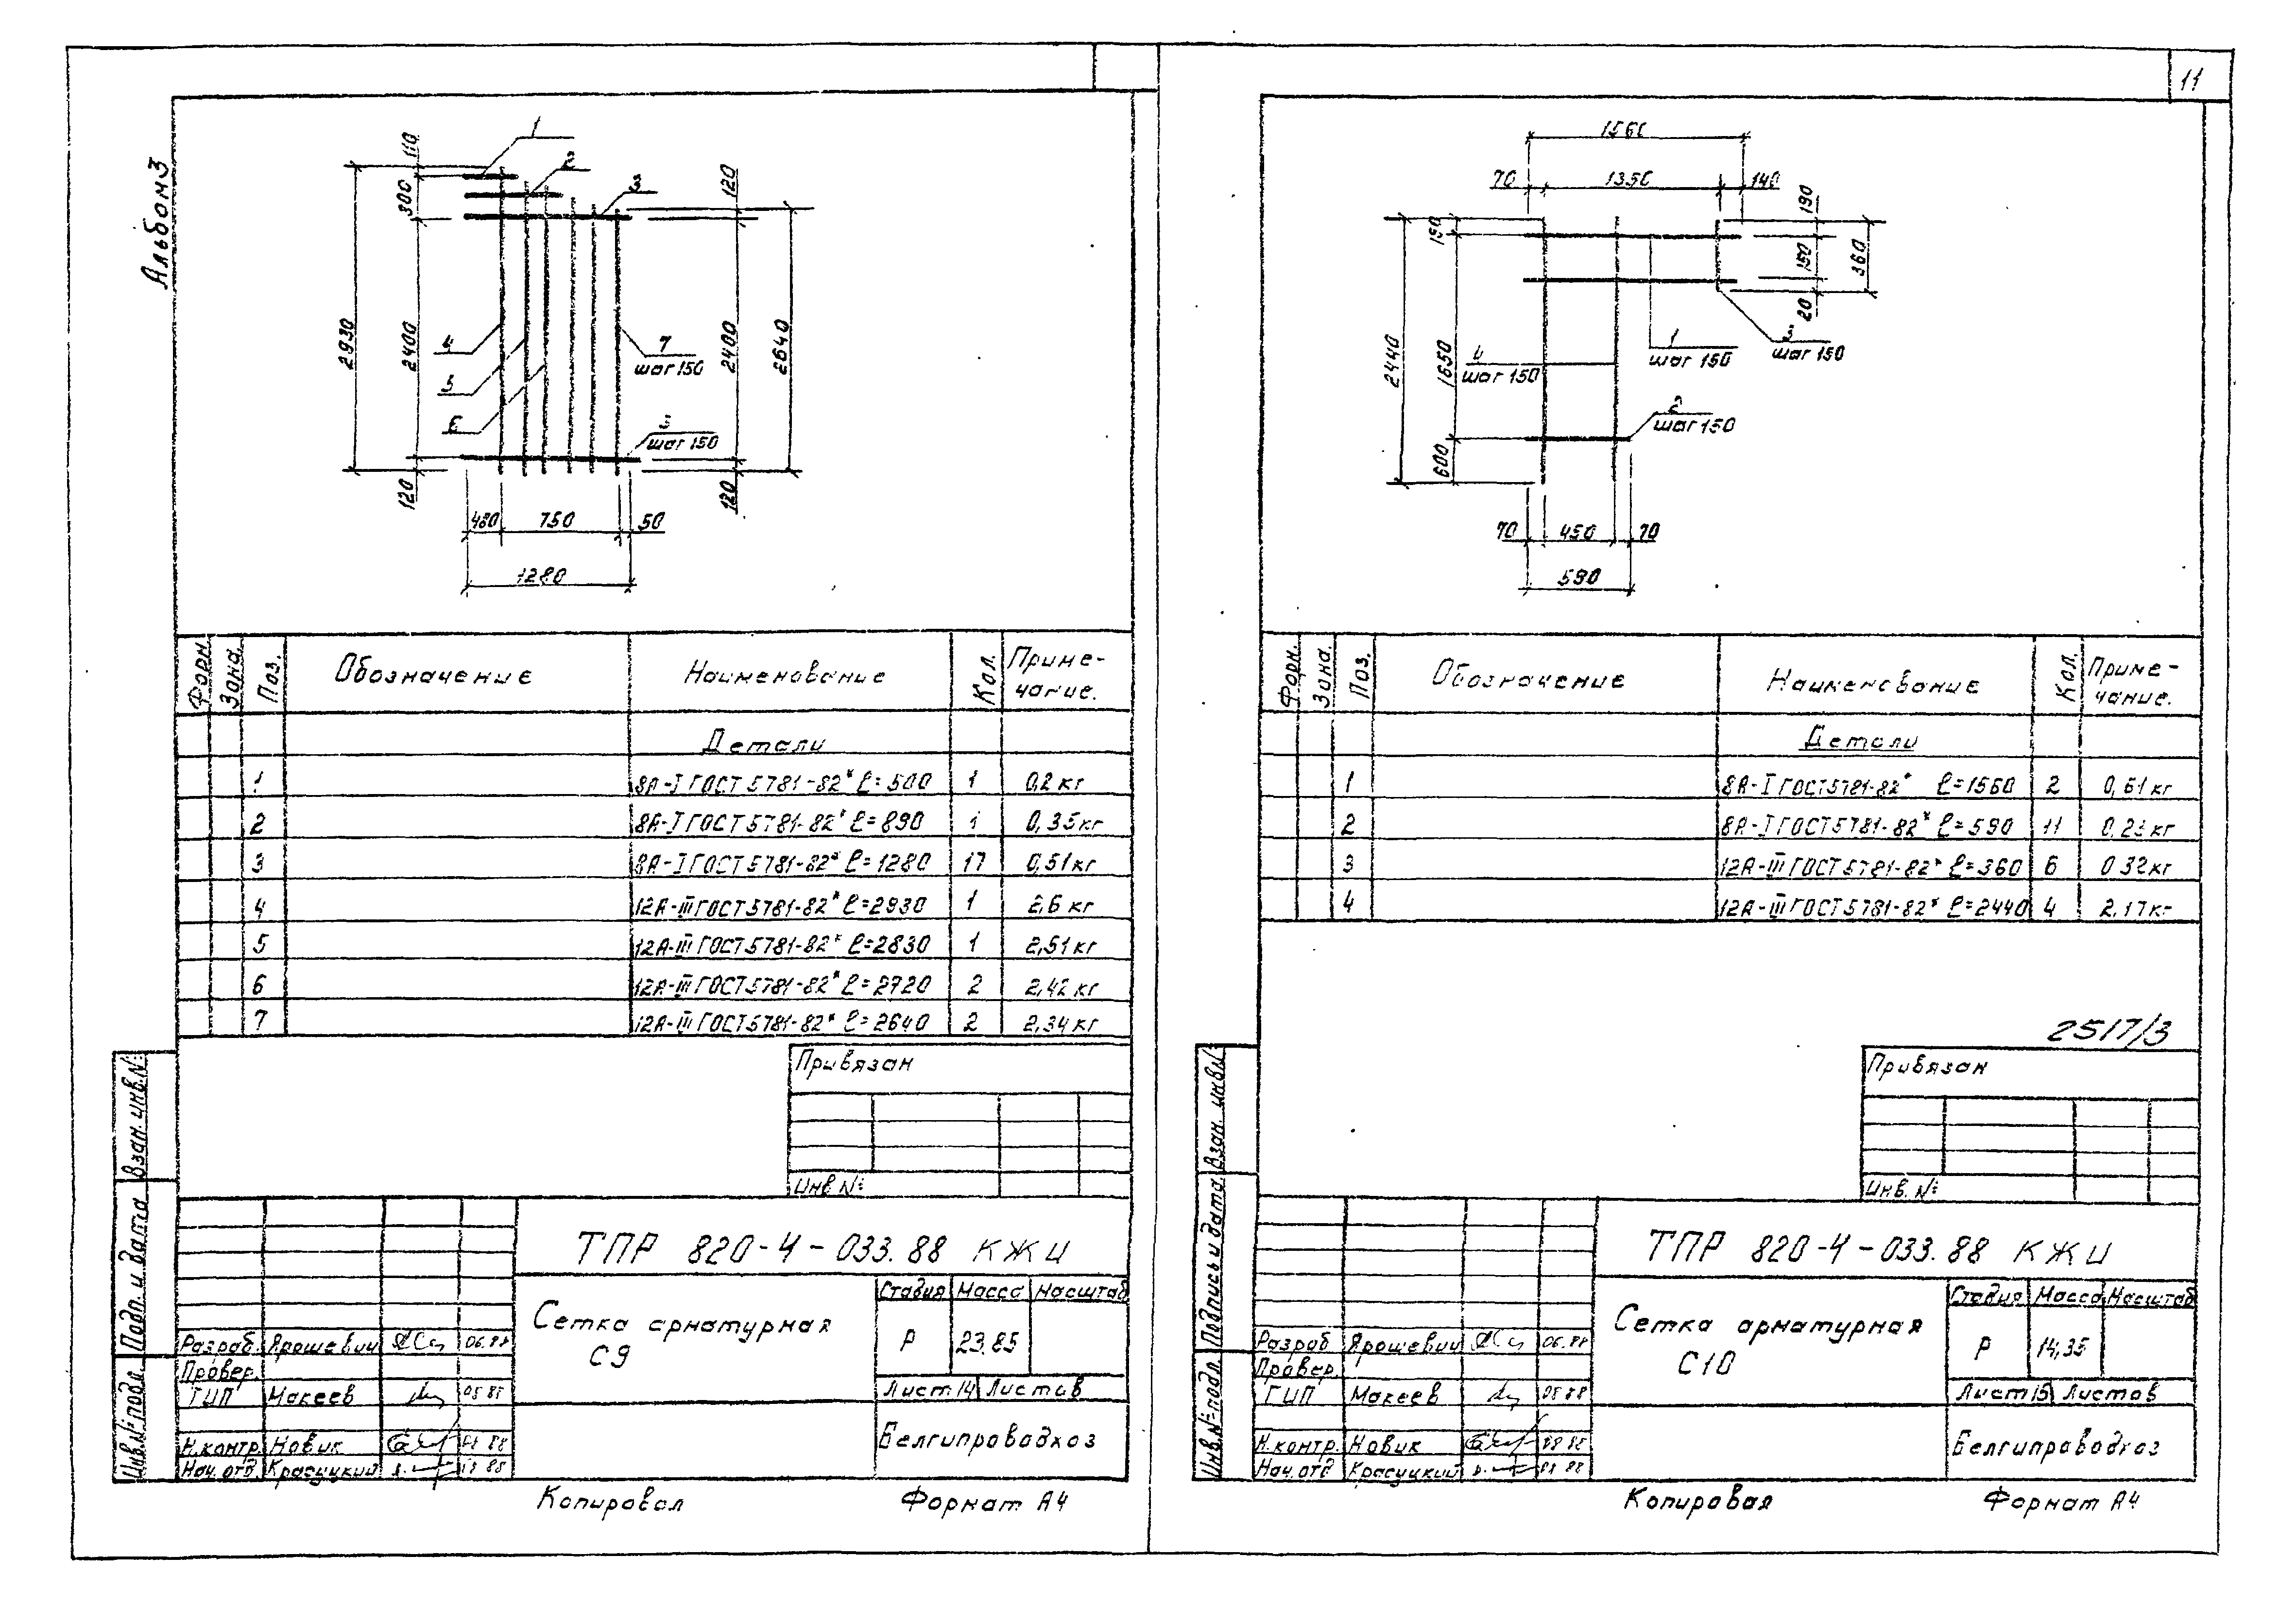 11
Альбом 3
1
2
3
110
300
2930
2400
120
4
5
6
7
шаг 150
3
шаг 150
120
2400
2640
120
480
750
50
1280
Форм.
Зона.
Поз.
Обозначение
Наименование
Кол.
Приме-
чание.
Детали
1 8А-I ГОСТ 5781-82* ℓ=500 1 0,2 кг
2 8А-I ГОСТ 5781-82* ℓ=890 1 0,35 кг
3 8А-I ГОСТ 5781-82* ℓ=1280 17 0,51 кг
4 12А-III ГОСТ 5781-82* ℓ=2930 1 2,6 кг
5 12А-III ГОСТ 5781-82* ℓ=2830 1 2,51 кг
6 12А-III ГОСТ 5781-82* ℓ=2720 2 2,42 кг
7 12А-III ГОСТ 5781-82* ℓ=2640 2 2,34 кг
Привязан
Инв №:
Взан. инв.№:
Подп. и дата
Инв.№: подл.
ТПР 820-4-033.88 КЖИ
Сетка арматурная
С9
Стадия Масса Масштаб
Р 23.85
Лист 14 Листов
Белгипроводхоз
Разраб. Ярошевич 06.88
Провер.
ГИП Макеев
Н.контр. Новик
Нач. отд Красуцкий
Копировал
Формат А4
1560
70
1350
140
190
150
360
20
190
2440
1650
600
4
шаг 150
1
шаг 150
3
шаг 150
2
шаг 150
70
450
70
590
Форм.
Зона.
Поз.
Обозначение
Наименование
Кол.
Приме-
чание.
Детали
1 8А-I ГОСТ 5781-82* ℓ=1560 2 0,61 кг
2 8А-I ГОСТ 5781-82* ℓ=590 11 0,23 кг
3 12А-III ГОСТ 5781-82* ℓ=360 6 0,32 кг
4 12А-III ГОСТ 5781-82* ℓ=2440 4 2,17 кг
2517/3
Привязан
Инв. №:
Взан. инв.№:
Подпись и дата
Инв.№: подл.
ТПР 820-4-033.88 КЖИ
Сетка арматурная
С10
Стадия Масса Масштаб
Р 14,35
Лист 15 Листов
Белгипроводхоз
Разраб Ярошевич 06.88
Провер.
ГИП Макеев
Н.контр. Новик
Нач. отд Красуцкий
Копировал
Формат А4